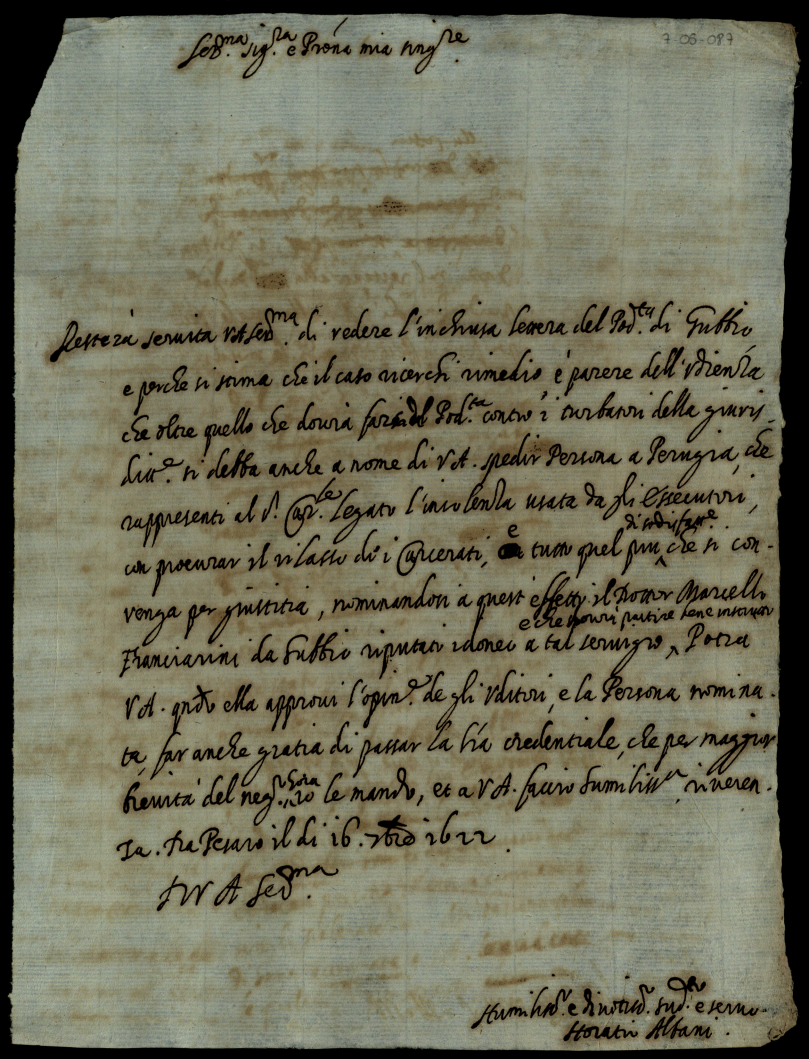 7-06-087
Ser.ma Sig.ra e Pró͠na mia sing.re
Resterà seruita VA Ser.ma di vedere l'inchiusa lettera del Pod.tà di Gubbio
e perche si stima che il caso ricerchi rimedio è parere dell'Vdienza
che oltre quello che dourà farsi dal Pod.tà contro i turbatori della giuris-
ditt.e si debba anche a nome di V A. spedir Persona a Perugia, che
rappresenti al S.r Car.le Legato l'insolenza usata da gli essecutori,
con procurar il rilasso de i Carcerati, e tutto quel più di sodisfatt.e che si con-
uenga per giustitia, nominandosi a quest'effetto il Dottor Marcello
Franciarini da Gubbio riputato idoneo a tal seruigio, e che potrà partire bene instrutto Potrà
V A. qñdo ella approui l'opin.e de gli Vditori, e la Persona nomina-
ta, far anche gratia di passar la l͠ra credentiale, che per maggior
breuità del neg.o hora le mando, et a V A. faccio humiliss.a riueren-
za. Da Pesaro il di 16. 7bre 1622.
Di V A Ser.ma
Humiliss.o e diuotiss.o sud.to e seruo
Horatio Albani.